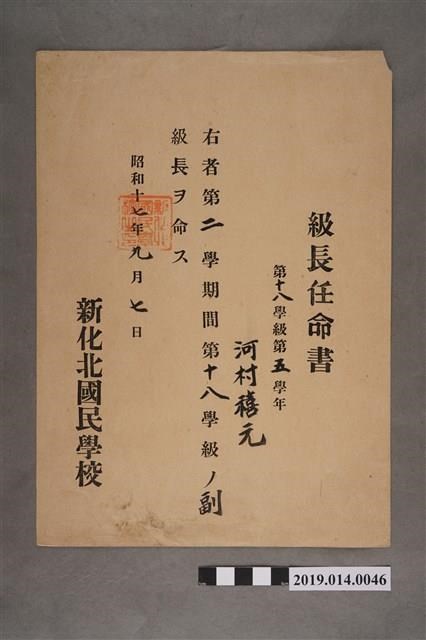 級長任命書
第十八學級第五學年
河村禧元
右者第二學期間第十八學級ノ副
級長ヲ命ス
昭和十七年九月七日
新化北國民學校
2019.014.0046